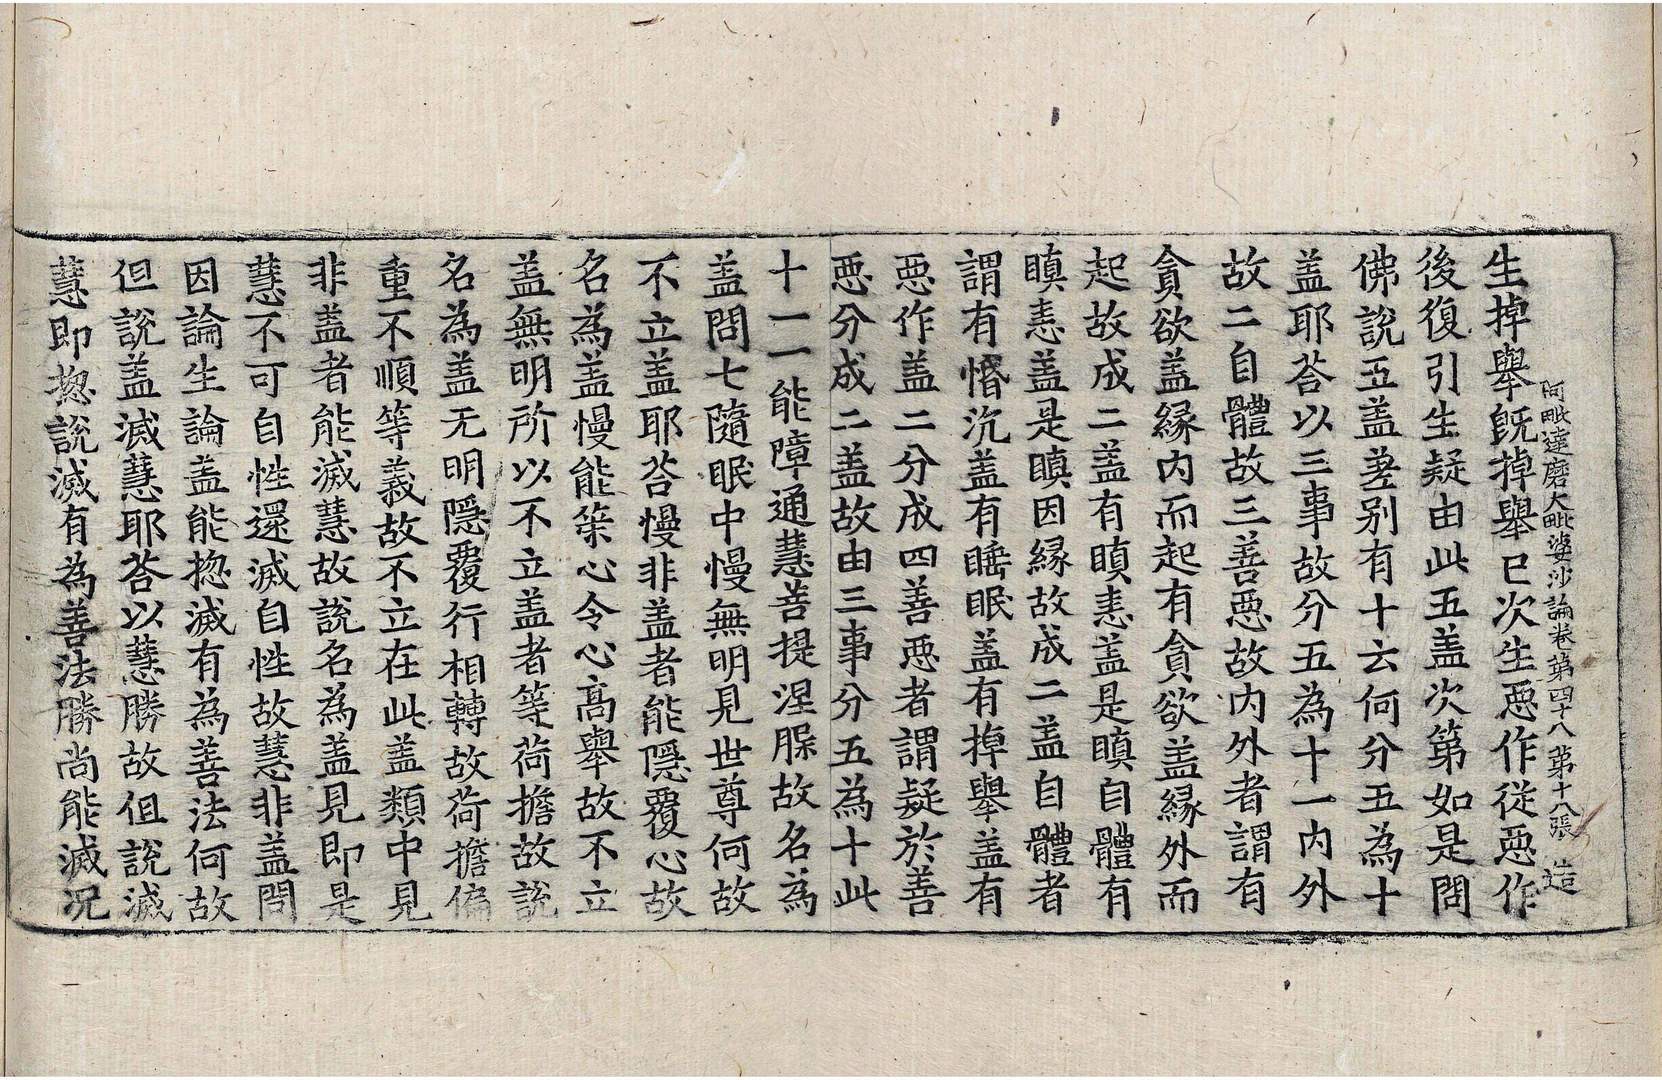 阿毗達磨大毗婆沙論卷第四十八 第十八張 造
生掉舉旣掉舉已次生惡作從惡作
後復引生疑由此五盖次第如是問
佛說五盖差別有十云何分五為十
盖耶荅以三事故分五為十一內外
故二自體故三善惡故內外者謂有
貪欲盖緣內而起有貪欲盖緣外而
起故成二盖有瞋恚盖是瞋自體有
瞋恚盖是瞋因緣故成二盖自體者
謂有惛沉盖有睡眠盖有掉舉盖有
惡作盖二分成四善惡者謂疑於善
惡分成二盖故由三事分五為十此
十一一能障通慧菩提涅槃故名為
盖問七隨眠中慢無明見世尊何故
不立盖耶荅慢非盖者能隱覆心故
名為盖慢能策心令心高舉故不立
盖無明所以不立盖者等荷擔故說
名為盖无明隱覆行相轉故荷擔偏
重不順等義故不立在此盖類中見
非盖者能滅慧故說名為盖見即是
慧不可自性還滅自性故慧非盖問
因論生論盖能揔滅有為善法何故
但說盖滅慧耶荅以慧勝故但說滅
慧即揔說滅有為善法勝尚能滅況